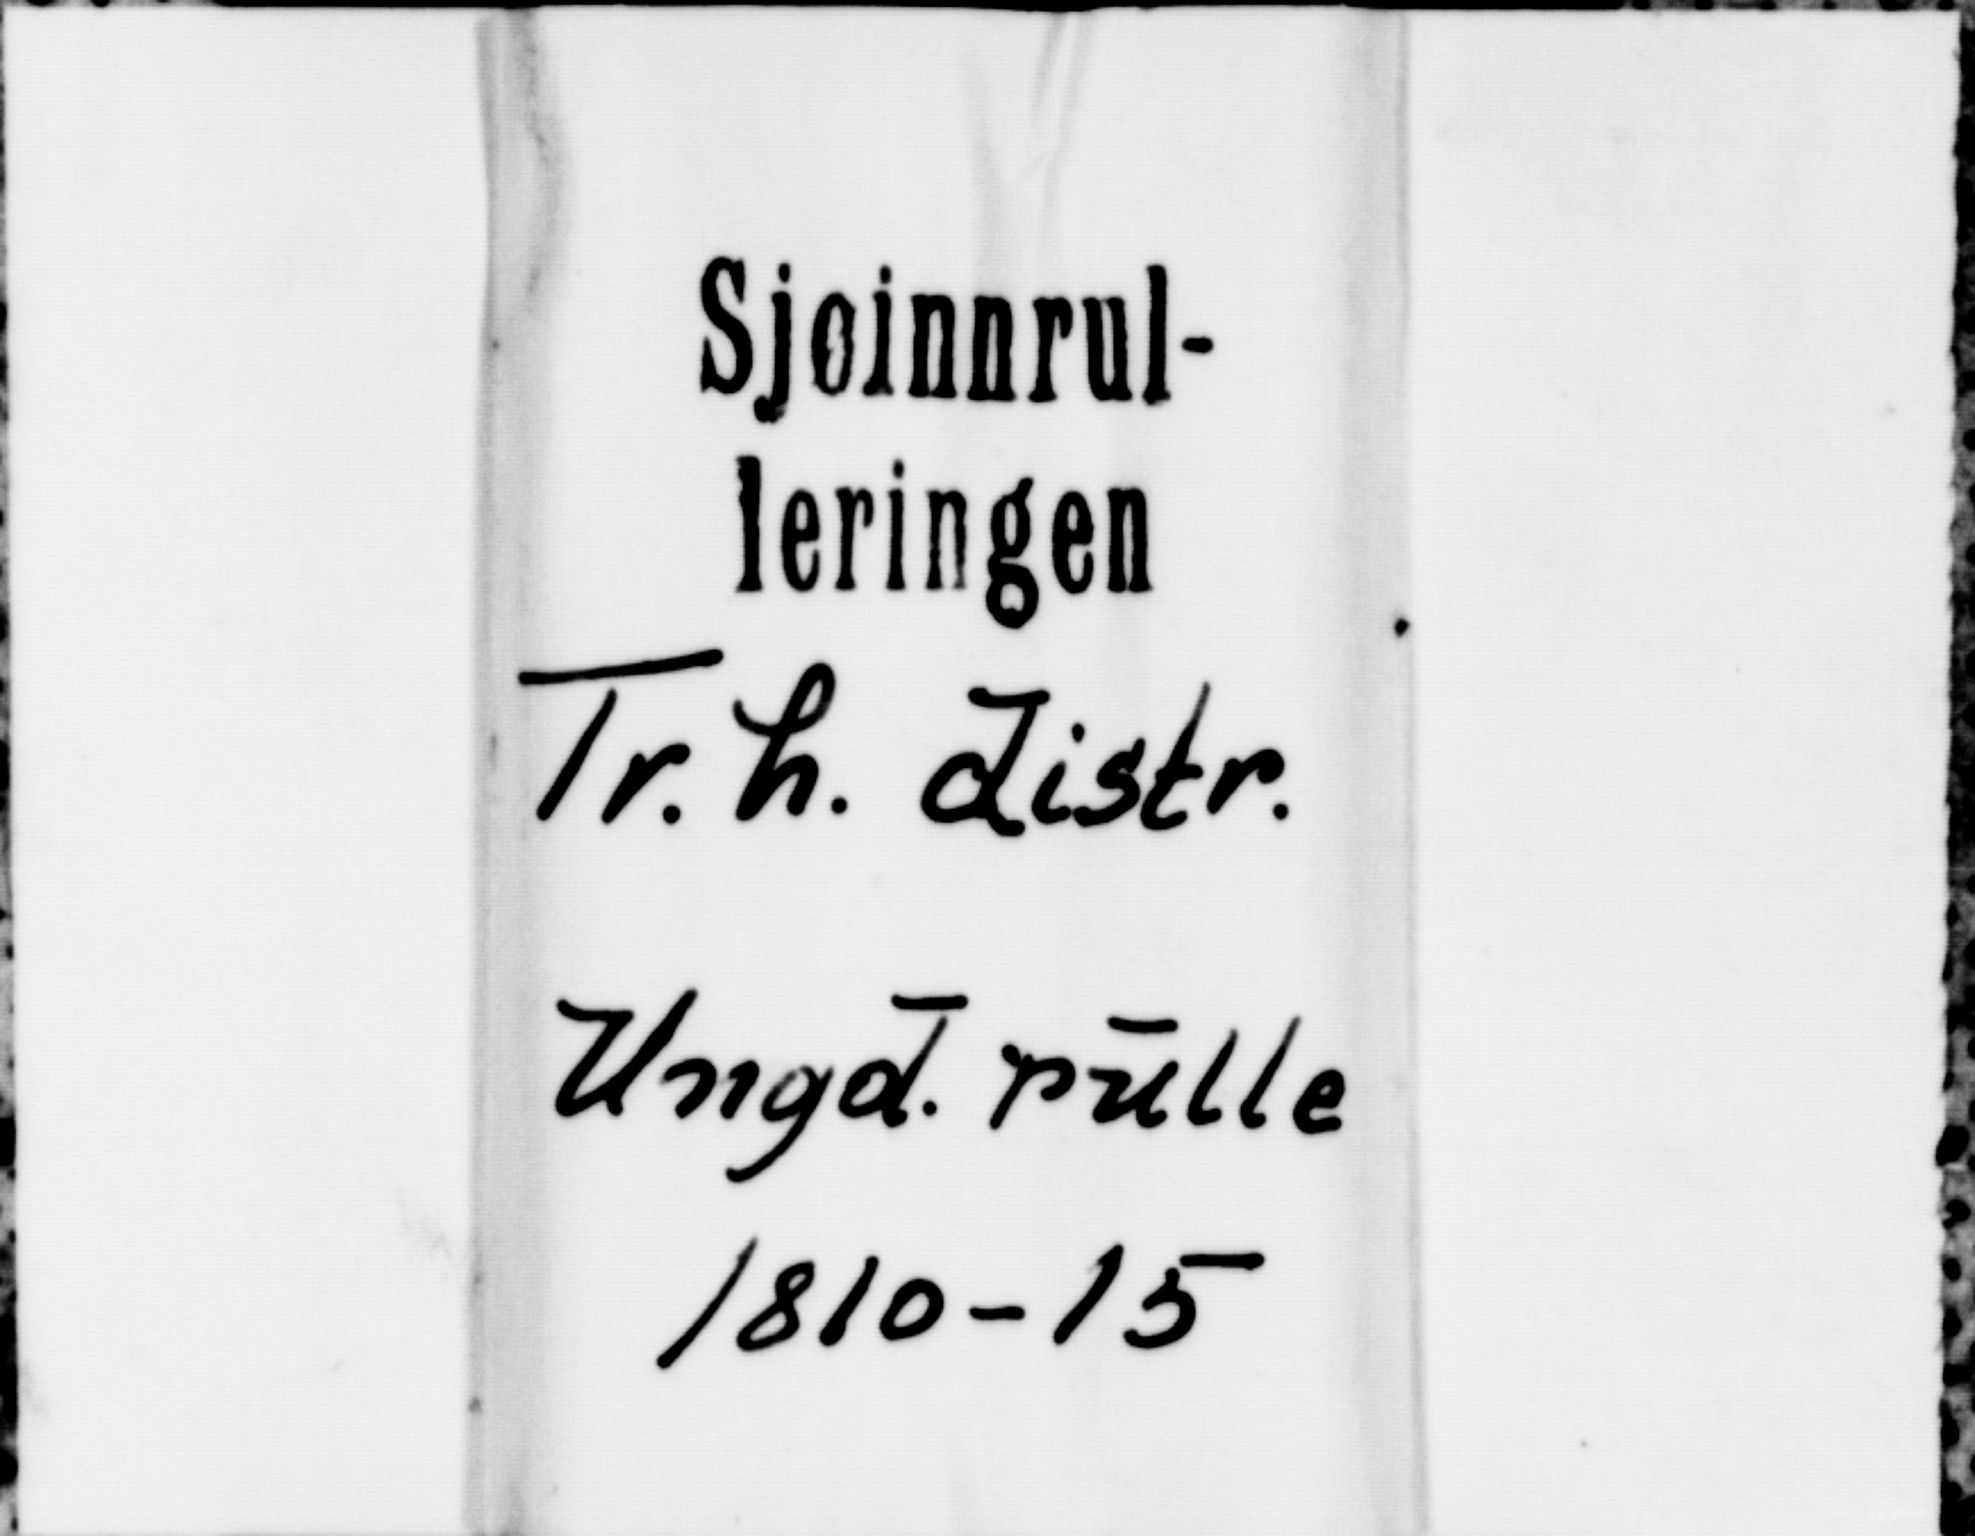 Sjøinnrul-
leringen
Tr. h. distr.
Ungd. rūlle
1810-15